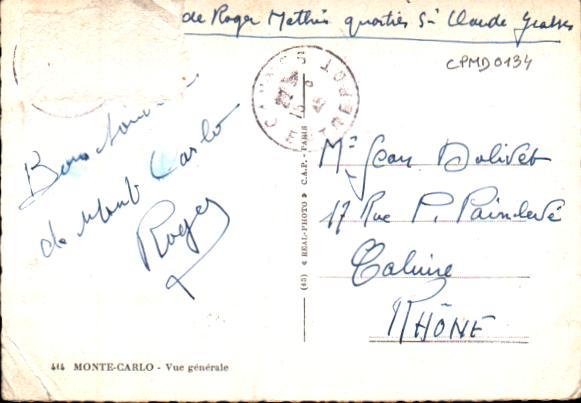 de Roger Mathis quartier St Claude Grasse
CPMD0134
Bons Souvenirs
de Mont Carlo
Roger
Mr Jean Dolivet
17 Rue P. Painlevé
Caluire
RHÔNE
(45) « REAL-PHOTO » C.A.P. - PARIS
414 MONTE-CARLO - Vue générale